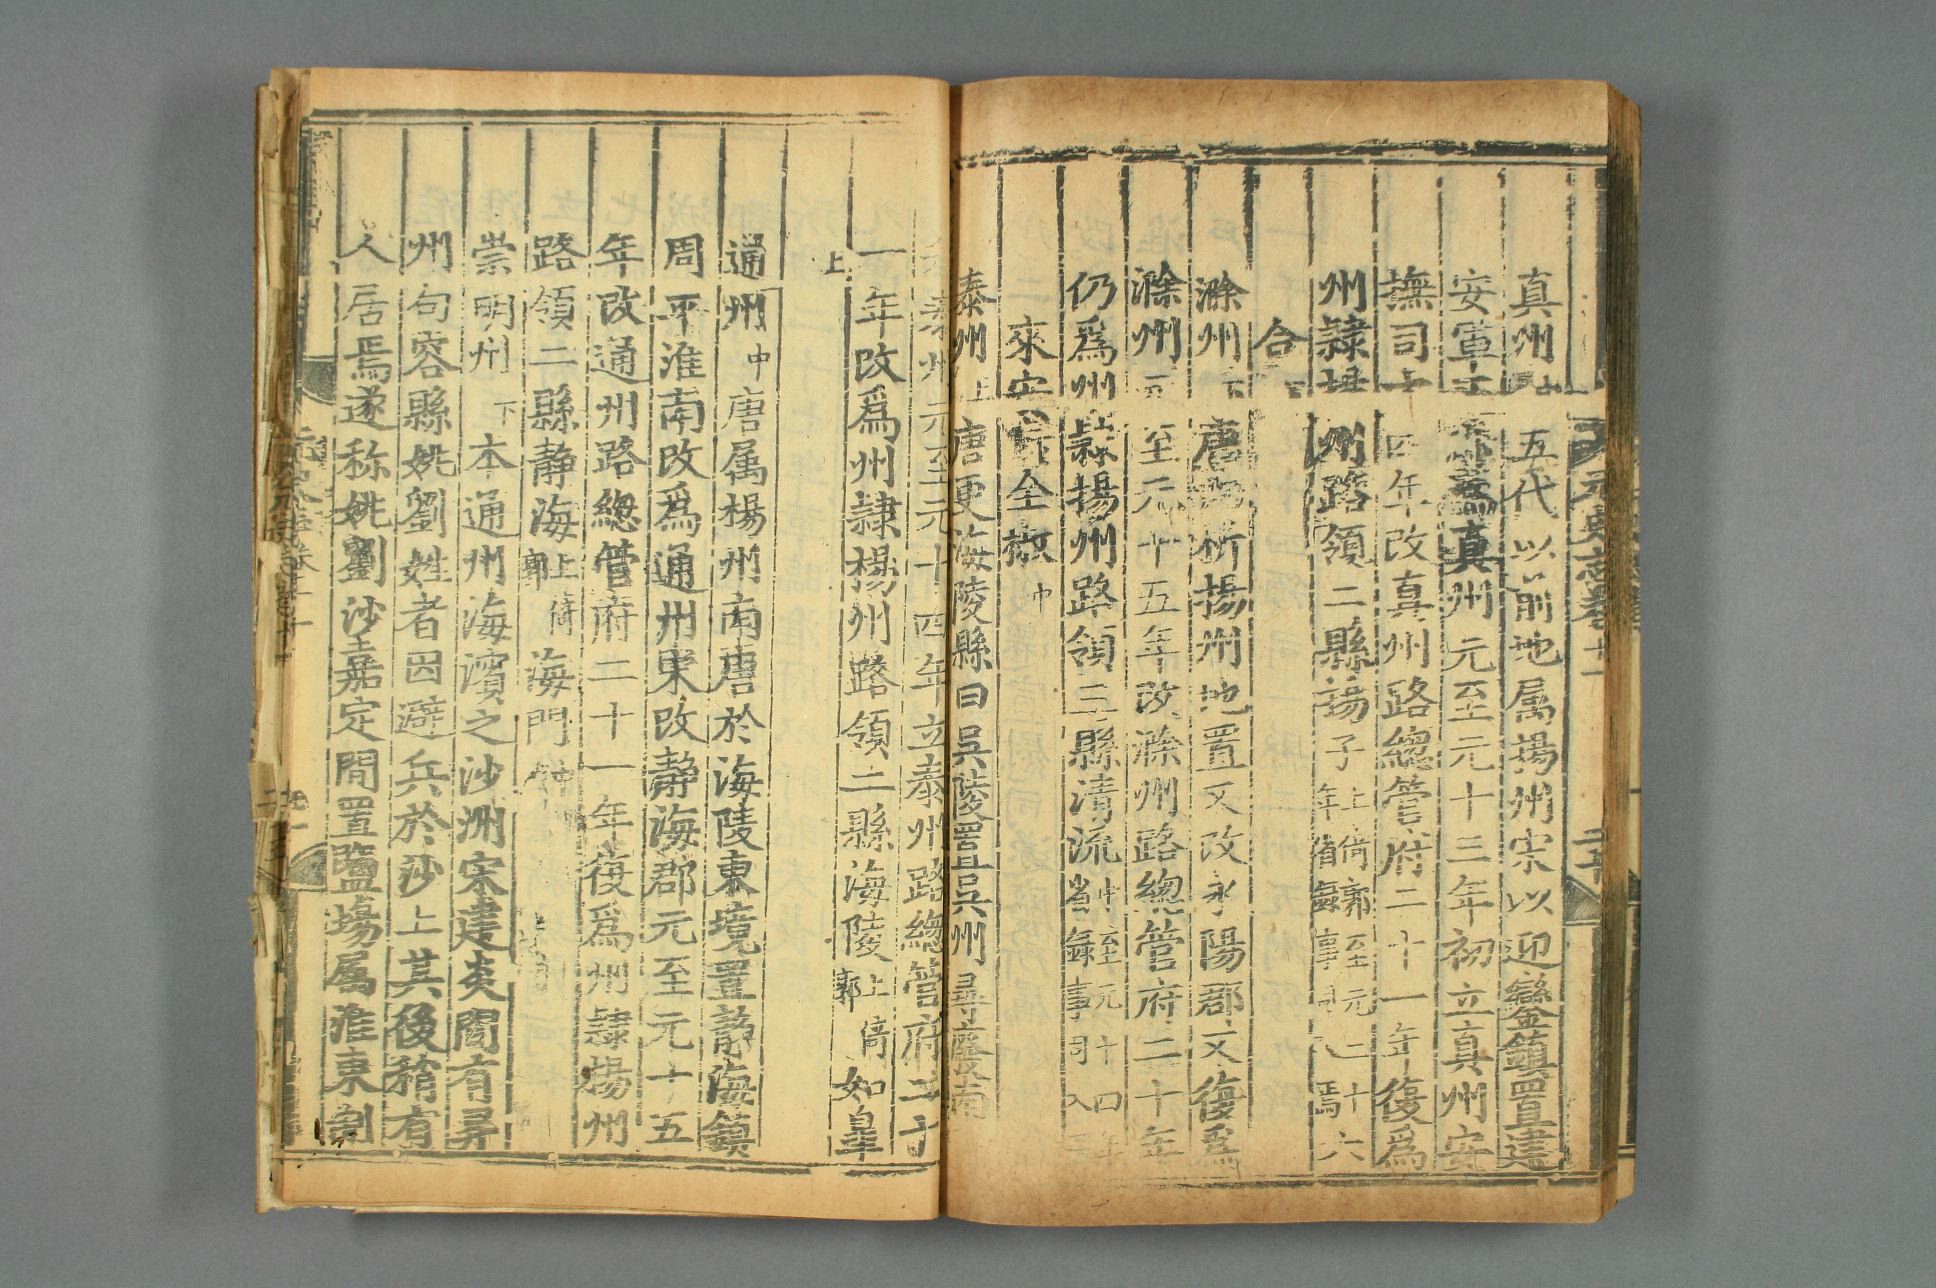 元史志卷十一
二十
真州 五代以前地屬揚州宋以迎鑾鎮置建
安軍 爲真州元至元十三年初立真州安
撫司十四年改真州路總管府二十一年復爲
州隸揚州路領二縣揚子上倚郭至元二十六年省錄事司入焉
六合
滁州下 唐 析揚州地置又改永陽郡又復爲
滁州元至元十五年改滁州路總管府二十年
仍爲州隸揚州路領三縣清流中至元十四年省錄事司入
來安 全椒中
泰州上唐更海陵縣曰吳陵置吳州尋廢南
泰州元至元十四年立泰州路總管府二十
一年改爲州隸楊州路領二縣海陵上倚郭如皋
上
通州中唐属楊州南唐於海陵東境置静海鎮
周平淮南改爲通州宋改静海郡元至元十五
年改通州路總管府二十一年復爲州隸楊州
路領二縣静海上倚郭海門中
崇明州下本通州海濱之沙洲宋建炎間有昇
州句容縣姚劉姓者因避兵於沙上其後稍有
人居焉遂称姚劉沙嘉定間置鹽塲属淮東制